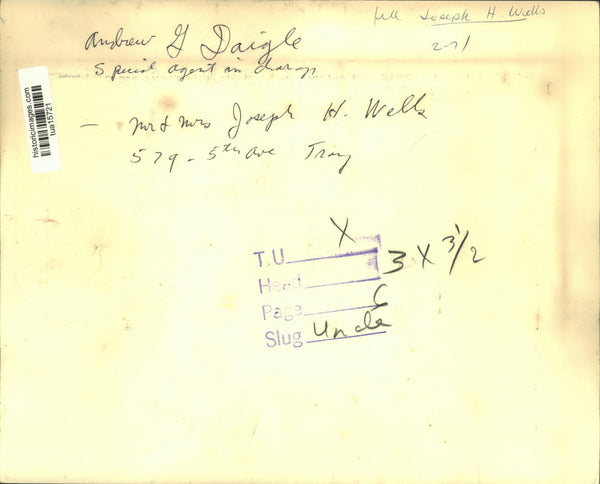 file Joseph H. Wells
2-71
Andrew G Daigle
Special agent in charge
historicimages.com
tua15721
— Mr & Mrs Joseph H. Wells
579 - 5th Ave Troy
T.U. X
Head 3 X 3 1/2
Page C
Slug Uncle